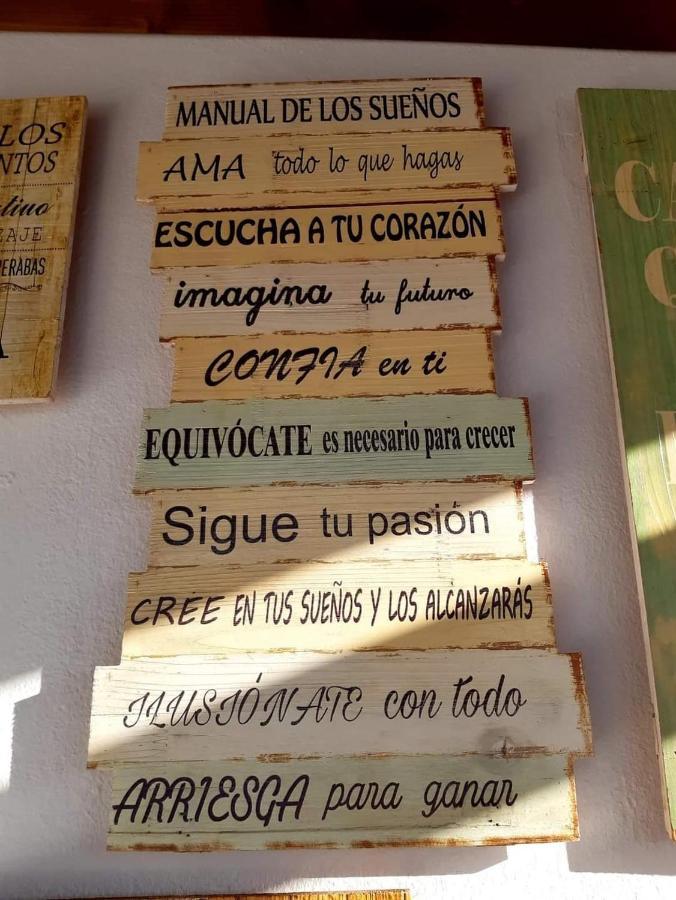 MANUAL DE LOS SUEÑOS
AMA todo lo que hagas
ESCUCHA A TU CORAZÓN
imagina tu futuro
CONFIA en ti
EQUIVÓCATE es necesario para crecer
Sigue tu pasión
CREE EN TUS SUEÑOS Y LOS ALCANZARÁS
ILUSIÓNATE con todo
ARRIESGA para ganar
LOS
NTOS
AJE
PERABAS
CA